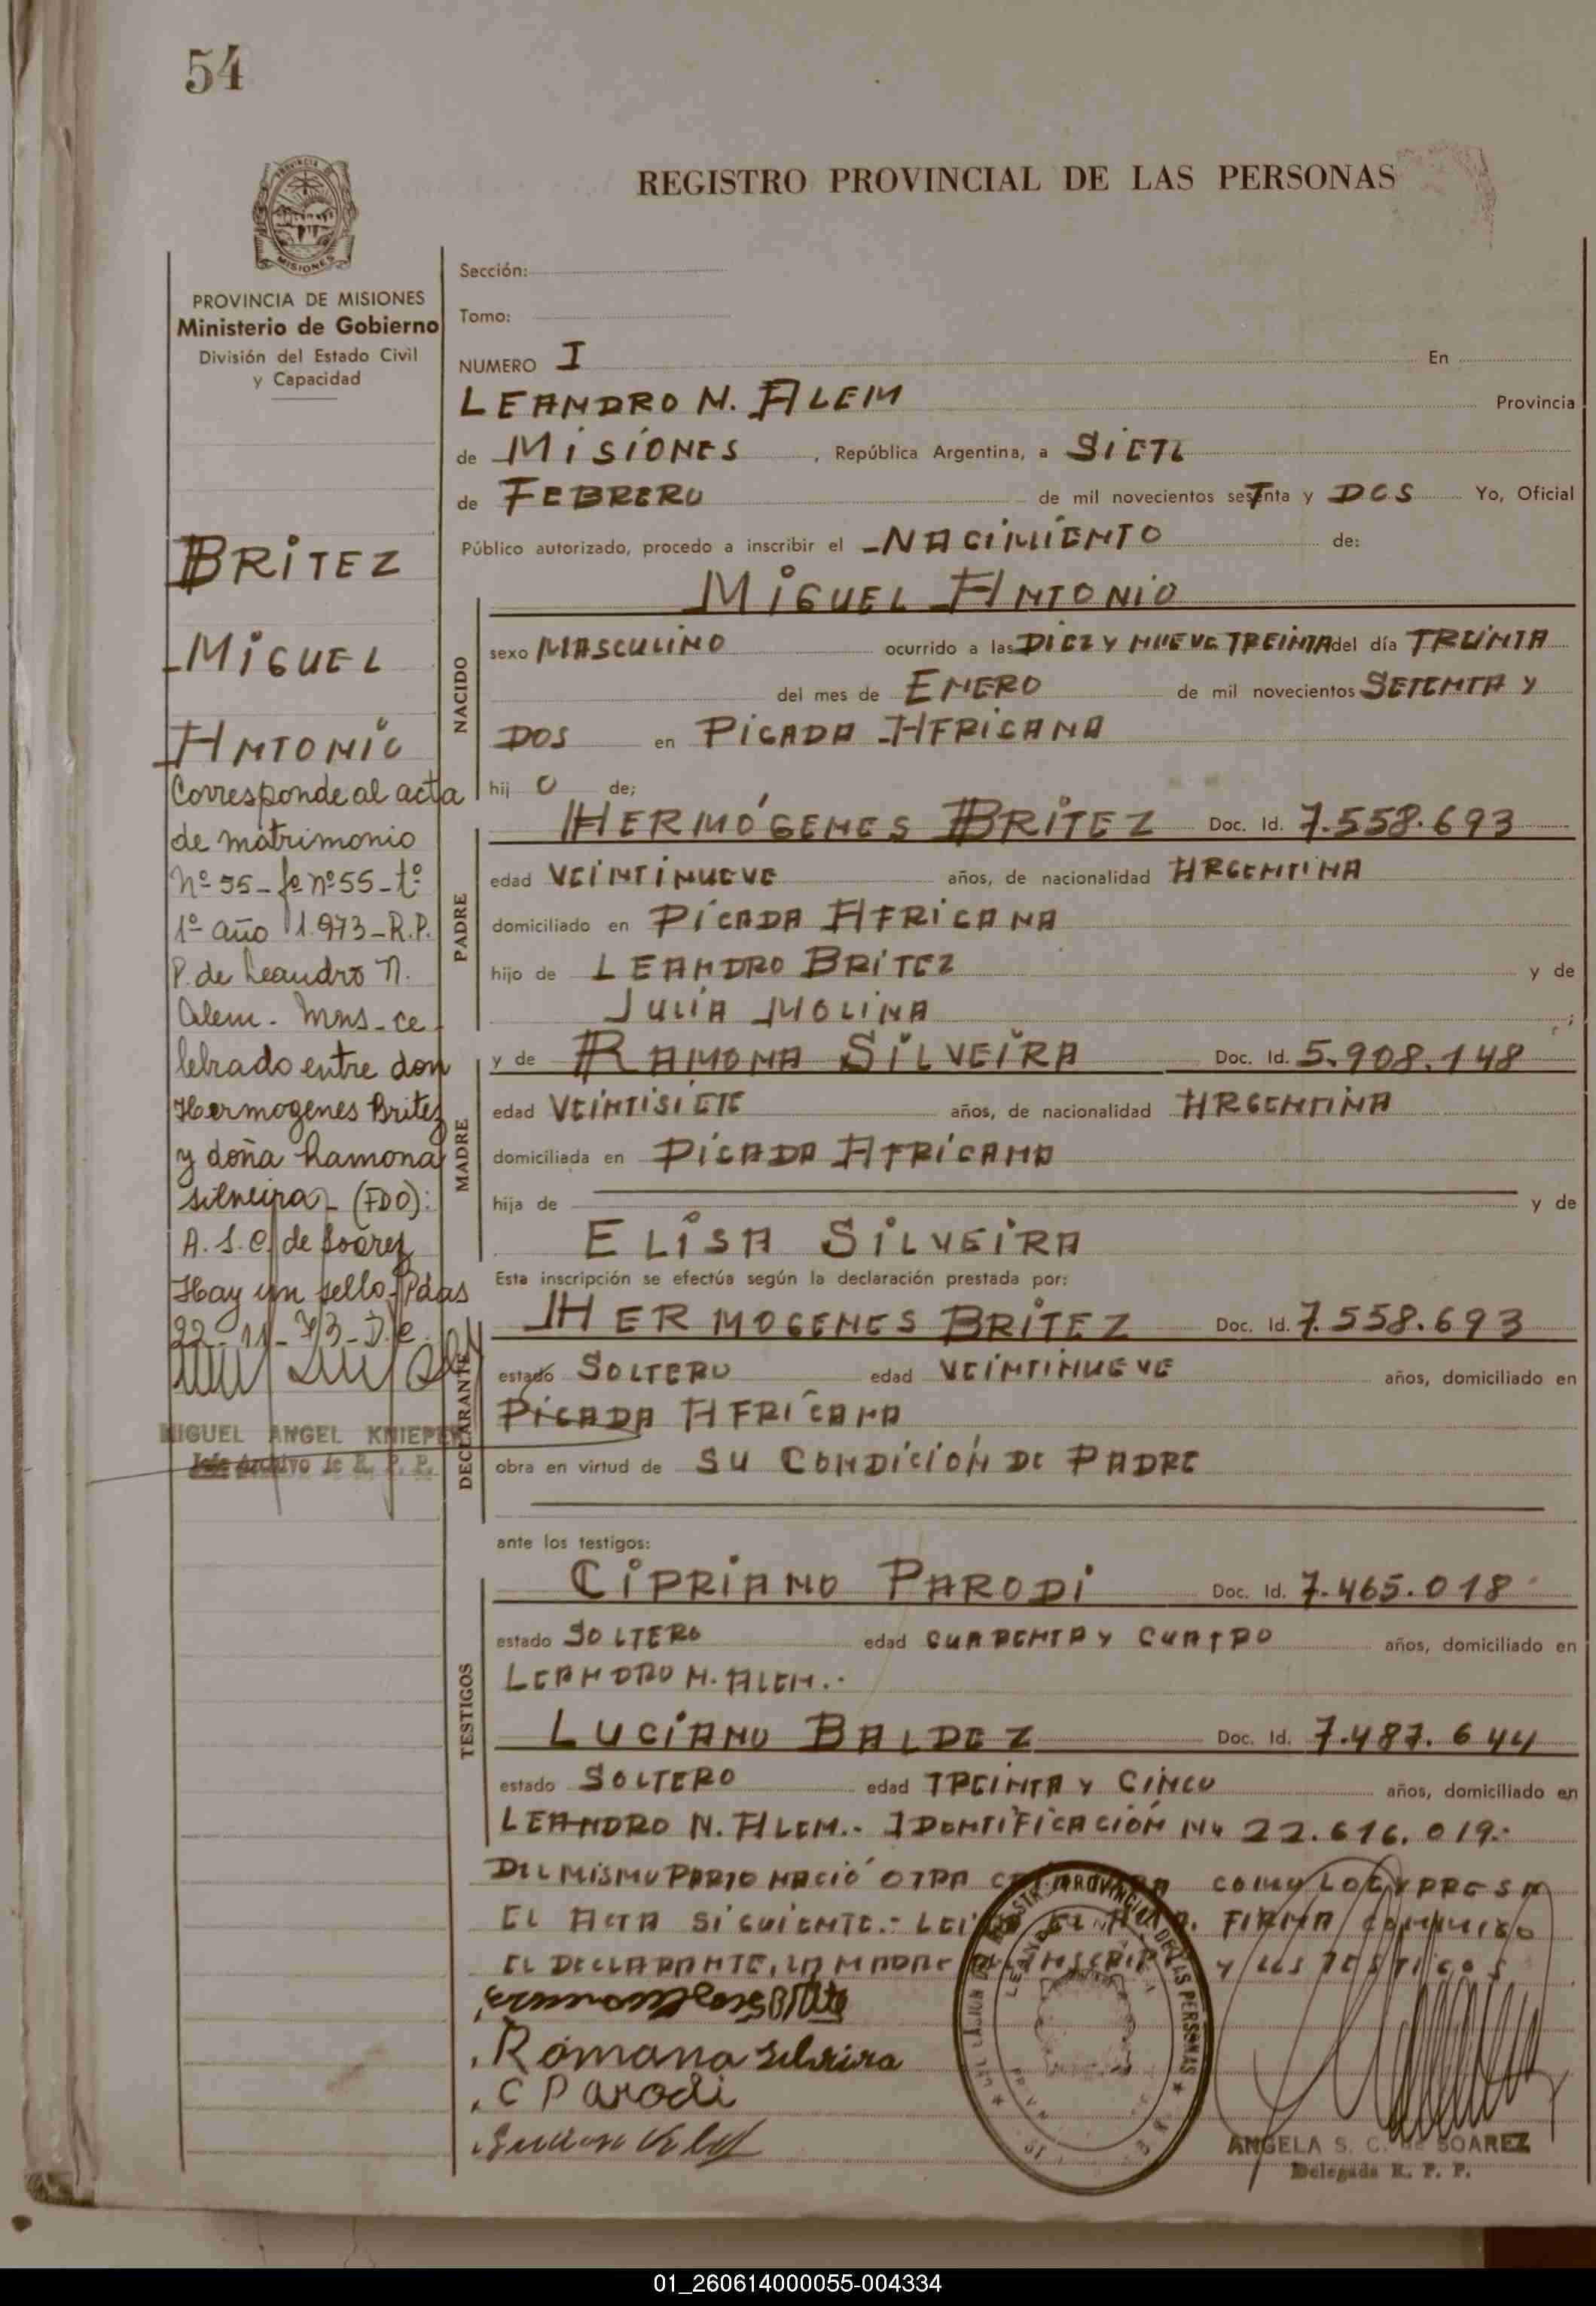 54
REGISTRO PROVINCIAL DE LAS PERSONAS
PROVINCIA DE MISIONES
Ministerio de Gobierno
División del Estado Civil
y Capacidad
BRITEZ
MIGUEL
ANTONIO
Corresponde al acta
de matrimonio
Nº 55 - fº nº 55 - tº
1º año 1.973 - R.P.
P. de Leandro N.
Alem - Mns - ce
lebrado entre don
Hermogenes Britez
y doña Ramona
Silveira - (FDO):
A. S. C. de Soarez
Hay un sello - Pdas
22 - 11 - 73 -
MIGUEL ANGEL KNIEPER
Jefe Archivo R. P. P.
Sección:
Tomo:
NUMERO I En
LEANDRO N. ALEM Provincia
de MISIONES , República Argentina, a SIETE
de FEBRERO de mil novecientos sesTnta y DOS Yo, Oficial
Público autorizado, procedo a inscribir el NACIMIENTO de:
NACIDO
MIGUEL ANTONIO
sexo MASCULINO ocurrido a las DIEZ Y NUEVE TREINTA del día TREINTA
del mes de ENERO de mil novecientos SETENTA Y
DOS en PICADA AFRICANA
hij O de;
PADRE
HERMÓGENES BRITEZ Doc. Id. 7.558.693
edad VEINTINUEVE años, de nacionalidad ARGENTINA
domiciliado en PICADA AFRICANA
hijo de LEANDRO BRITEZ y de
JULIA MOLINA ;
MADRE
y de RAMONA SILVEIRA Doc. Id. 5.908.148
edad VEINTISIETE años, de nacionalidad ARGENTINA
domiciliada en PICADA AFRICANA
hija de y de
ELISA SILVEIRA
Esta inscripción se efectúa según la declaración prestada por:
DECLARANTE
HERMOGENES BRITEZ Doc. Id. 7.558.693
estado SOLTERO edad VEINTINUEVE años, domiciliado en
PICADA AFRICANA
obra en virtud de SU CONDICIÓN DE PADRE
ante los testigos:
TESTIGOS
CIPRIANO PARODI Doc. Id. 7.465.018
estado SOLTERO edad CUARENTA Y CUATRO años, domiciliado en
LEANDRO N. ALEM.-
LUCIANO BALDEZ Doc. Id. 7.487.644
estado SOLTERO edad TREINTA Y CINCO años, domiciliado en
LEANDRO N. ALEM.- IDENTIFICACIÓN Nº 22.616.019.-
DEL MISMO PARTO NACIÓ OTRA COMO LO EXPRESA
EL ACTA SIGUIENTE.- LEIDA EL ACTA, FIRMA CONMIGO
EL DECLARANTE, LA MADRE Y LOS TESTIGOS
Ramona Silveira
C Parodi
ANGELA S. C. de SOAREZ
Delegada R. P. P.
01_260614000055-004334